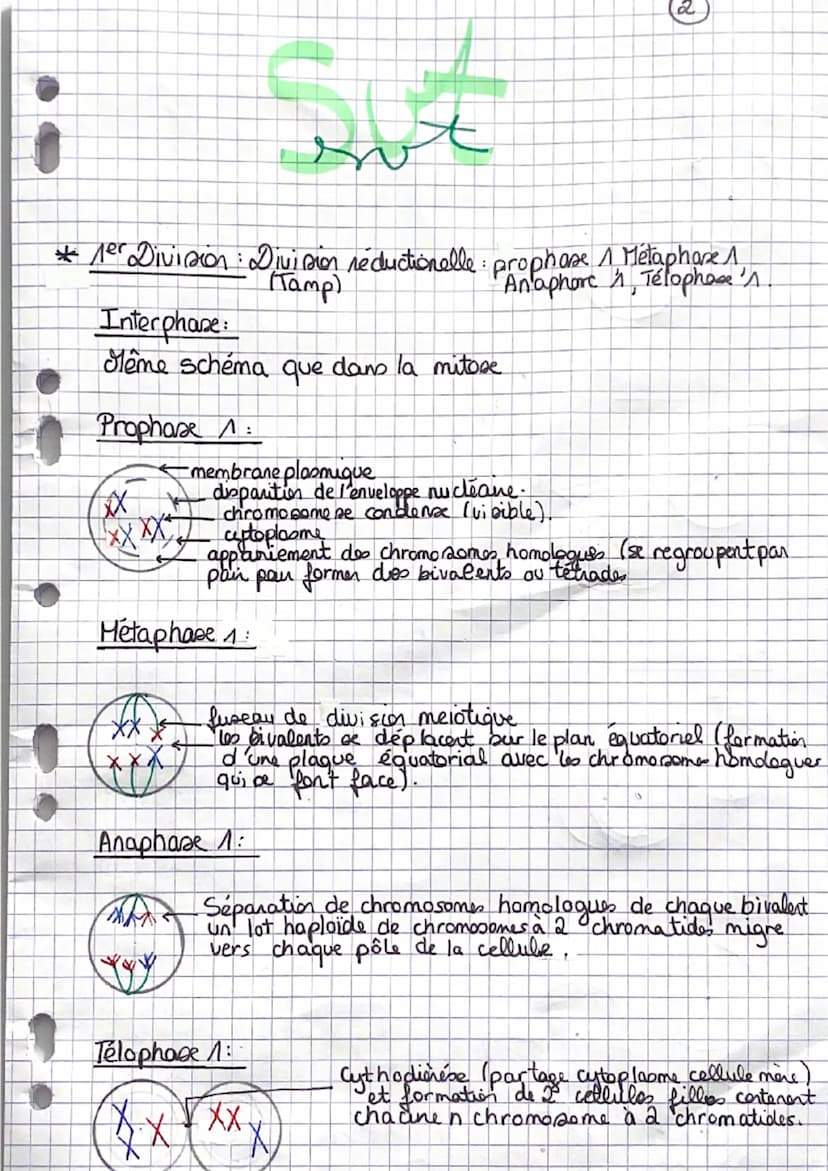 2
Svt
svt
* 1er Division : Division réductionelle : prophase 1 Métaphase 1,
(Tamp) Anaphase 1, Télophase 1.
Interphase :
Même schéma que dans la mitose
Prophase 1 :
membrane plasmique
disparition de l'enveloppe nucléaire.
chromosome se condense (visible).
cytoplasme
appariement des chromosomes homologues (se regroupent par
pair pour former des bivalents ou tétrades
Métaphase 1 :
fuseau de division meiotique
les bivalents se déplacent sur le plan équatoriel (formation
d'une plaque équatorial avec les chromosome homologues
qui se font face).
Anaphase 1 :
Séparation de chromosomes homologues de chaque bivalent
un lot haploïde de chromosomes à 2 chromatides migre
vers chaque pôle de la cellule.
Télophase 1 :
(partage cytoplasme cellule mère)
et formation de 2 cellules filles contenant
chacune n chromosome à 2 chromatides.